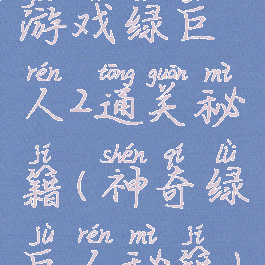 游戏绿巨
rén tōng guān mì
人2通关秘
jí shén qí lǜ
籍(神奇绿
jù rén mì jí
巨人秘籍)